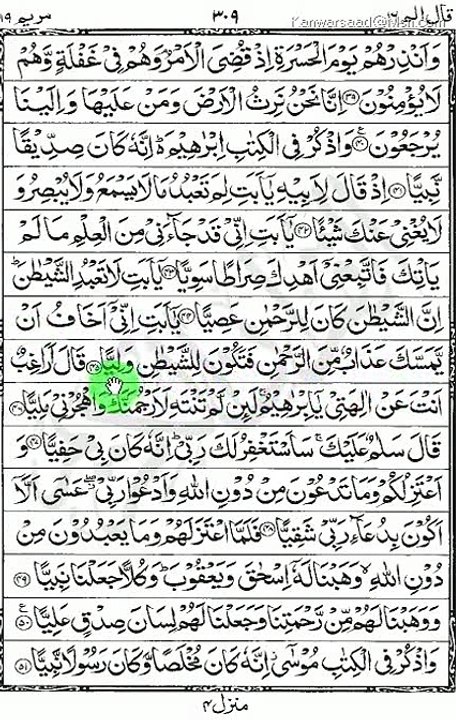 مريم ١٩ ٣٠٩ قال الم ١٦
Kanwarsaad@msn.com
وَاَنْذِرْهُمْ يَوْمَ الْحَسْرَةِ اِذْ قُضِىَ الْاَمْرُ وَهُمْ فِىْ غَفْلَةٍ وَّهُمْ
لَا يُؤْمِنُوْنَ ﴿٣٩﴾ اِنَّا نَحْنُ نَرِثُ الْاَرْضَ وَمَنْ عَلَيْهَا وَاِلَيْنَا
يُرْجَعُوْنَ ﴿٤٠﴾ وَاذْكُرْ فِى الْكِتٰبِ اِبْرٰهِيْمَ اِنَّهٗ كَانَ صِدِّيْقًا
نَّبِيًّا ﴿٤١﴾ اِذْ قَالَ لِاَبِيْهِ يٰۤاَبَتِ لِمَ تَعْبُدُ مَا لَا يَسْمَعُ وَلَا يُبْصِرُ وَ
لَا يُغْنِىْ عَنْكَ شَيْئًا ﴿٤٢﴾ يٰۤاَبَتِ اِنِّىْ قَدْ جَآءَنِىْ مِنَ الْعِلْمِ مَا لَمْ
يَاْتِكَ فَاتَّبِعْنِىْۤ اَهْدِكَ صِرَاطًا سَوِيًّا ﴿٤٣﴾ يٰۤاَبَتِ لَا تَعْبُدِ الشَّيْطٰنَ
اِنَّ الشَّيْطٰنَ كَانَ لِلرَّحْمٰنِ عَصِيًّا ﴿٤٤﴾ يٰۤاَبَتِ اِنِّىْۤ اَخَافُ اَنْ
يَّمَسَّكَ عَذَابٌ مِّنَ الرَّحْمٰنِ فَتَكُوْنَ لِلشَّيْطٰنِ وَلِيًّا ﴿٤٥﴾ قَالَ اَرَاغِبٌ
اَنْتَ عَنْ اٰلِهَتِىْ يٰۤاِبْرٰهِيْمُ لَئِنْ لَّمْ تَنْتَهِ لَاَرْجُمَنَّكَ وَاهْجُرْنِىْ مَلِيًّا ﴿٤٦﴾
قَالَ سَلٰمٌ عَلَيْكَ سَاَسْتَغْفِرُ لَكَ رَبِّىْ اِنَّهٗ كَانَ بِىْ حَفِيًّا ﴿٤٧﴾ وَ
اَعْتَزِلُكُمْ وَمَا تَدْعُوْنَ مِنْ دُوْنِ اللّٰهِ وَاَدْعُوْا رَبِّىْ عَسٰۤى اَلَّاۤ
اَكُوْنَ بِدُعَآءِ رَبِّىْ شَقِيًّا ﴿٤٨﴾ فَلَمَّا اعْتَزَلَهُمْ وَمَا يَعْبُدُوْنَ مِنْ
دُوْنِ اللّٰهِ وَهَبْنَا لَهٗۤ اِسْحٰقَ وَيَعْقُوْبَ وَكُلًّا جَعَلْنَا نَبِيًّا ﴿٤٩﴾
وَوَهَبْنَا لَهُمْ مِّنْ رَّحْمَتِنَا وَجَعَلْنَا لَهُمْ لِسَانَ صِدْقٍ عَلِيًّا ﴿٥٠﴾
وَاذْكُرْ فِى الْكِتٰبِ مُوْسٰۤى اِنَّهٗ كَانَ مُخْلَصًا وَّكَانَ رَسُوْلًا نَّبِيًّا ﴿٥١﴾
منزل ٤